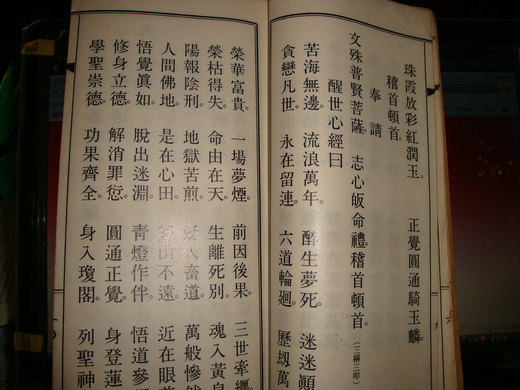 珠霞放彩紅潤玉。 正覺圓通騎玉麟
稽首頓首。
奉請
文殊普賢菩薩。 志心皈命禮。稽首頓首。(三稱三叩)
醒世心經曰
苦海無邊。 流浪萬年。 醉生夢死。 迷迷顚
貪戀凡世。 永在留連 六道輪廻。 歷刼萬
榮華富貴。 一場夢煙。 前因後果。 三世牽纏
榮枯得失。 命由在天。 生離死別。 魂入黃泉
陽報陰刑。 地獄苦煎。 畜道。 萬般慘
人間佛地。 是在心田。 不遠。 近在眼
悟覺眞如。 脫出迷淵。 青燈作伴。 悟道參
修身立德。 解消罪愆。 圓通正覺。 身登蓮
學聖崇德。 功果齊全。 身入瓊閣。 列聖神